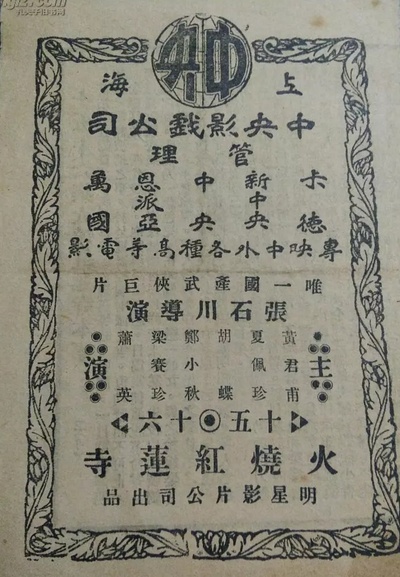 中央
上海
中央影戲公司
管理
卡德
新中央
中央
恩派亞
萬國
專映中外各種高等電影
唯一國產武俠巨片
張石川導演
主演
黃君甫
夏佩珍
胡蝶
鄭小秋
梁賽珍
蕭英
十五◎十六
火燒紅蓮寺
明星影片公司出品